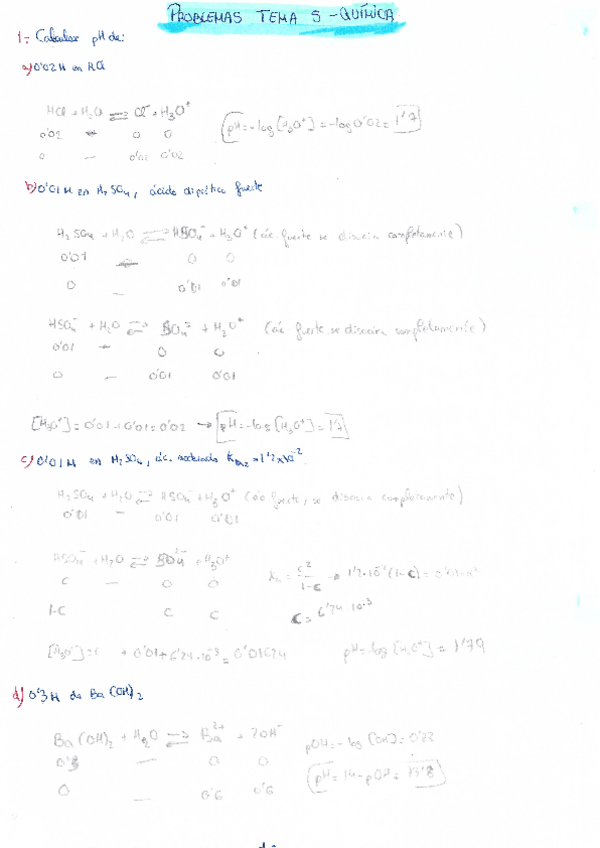 PROBLEMAS TEMA 5 - QUÍMICA
1.- Calcular pH de:
a) 0'02 M en HCl
HCl + H₂O ⇌ Cl⁻ + H₃O⁺
0'02 - 0 0
0 - 0'02 0'02
pH = -log [H₃O⁺] = -log 0'02 = 1'7
b) 0'01 M en H₂SO₄, ácido diprótico fuerte
H₂SO₄ + H₂O ⇌ HSO₄⁻ + H₃O⁺ (ác. fuerte se disocia completamente)
0'01 - 0 0
0 - 0'01 0'01
HSO₄⁻ + H₂O ⇌ SO₄⁼ + H₃O⁺ (ác fuerte, se disocia completamente)
0'01 - 0 0
0 - 0'01 0'01
[H₃O⁺] = 0'01 + 0'01 = 0'02 → pH = -log [H₃O⁺] = 1'7
c) 0'01 M en H₂SO₄, ác. moderado = 1'2×10⁻²
H₂SO₄ + H₂O ⇌ HSO₄⁻ + H₃O⁺ (ác fuerte, se disocia completamente)
0'01 - 0'01 0'01
HSO₄⁻ + H₂O ⇌ SO₄²⁻ + H₃O⁺
C - 0 0
1-C C C
= c²/1-c → 1'2·10⁻² (1-c) =
C = 6'24·10⁻³
+ 0'01 + 6'24·10⁻³ = 0'01624
pH = -log [H₃O⁺] = 1'79
d) 0'3 M de Ba(OH)₂
Ba(OH)₂ + H₂O ⇌ Ba²⁺ + 2OH⁻
0'3 - 0 0
0 - 0'6 0'6
pOH = -log [OH] = 0'22
pH = 14 - pOH = 13'8